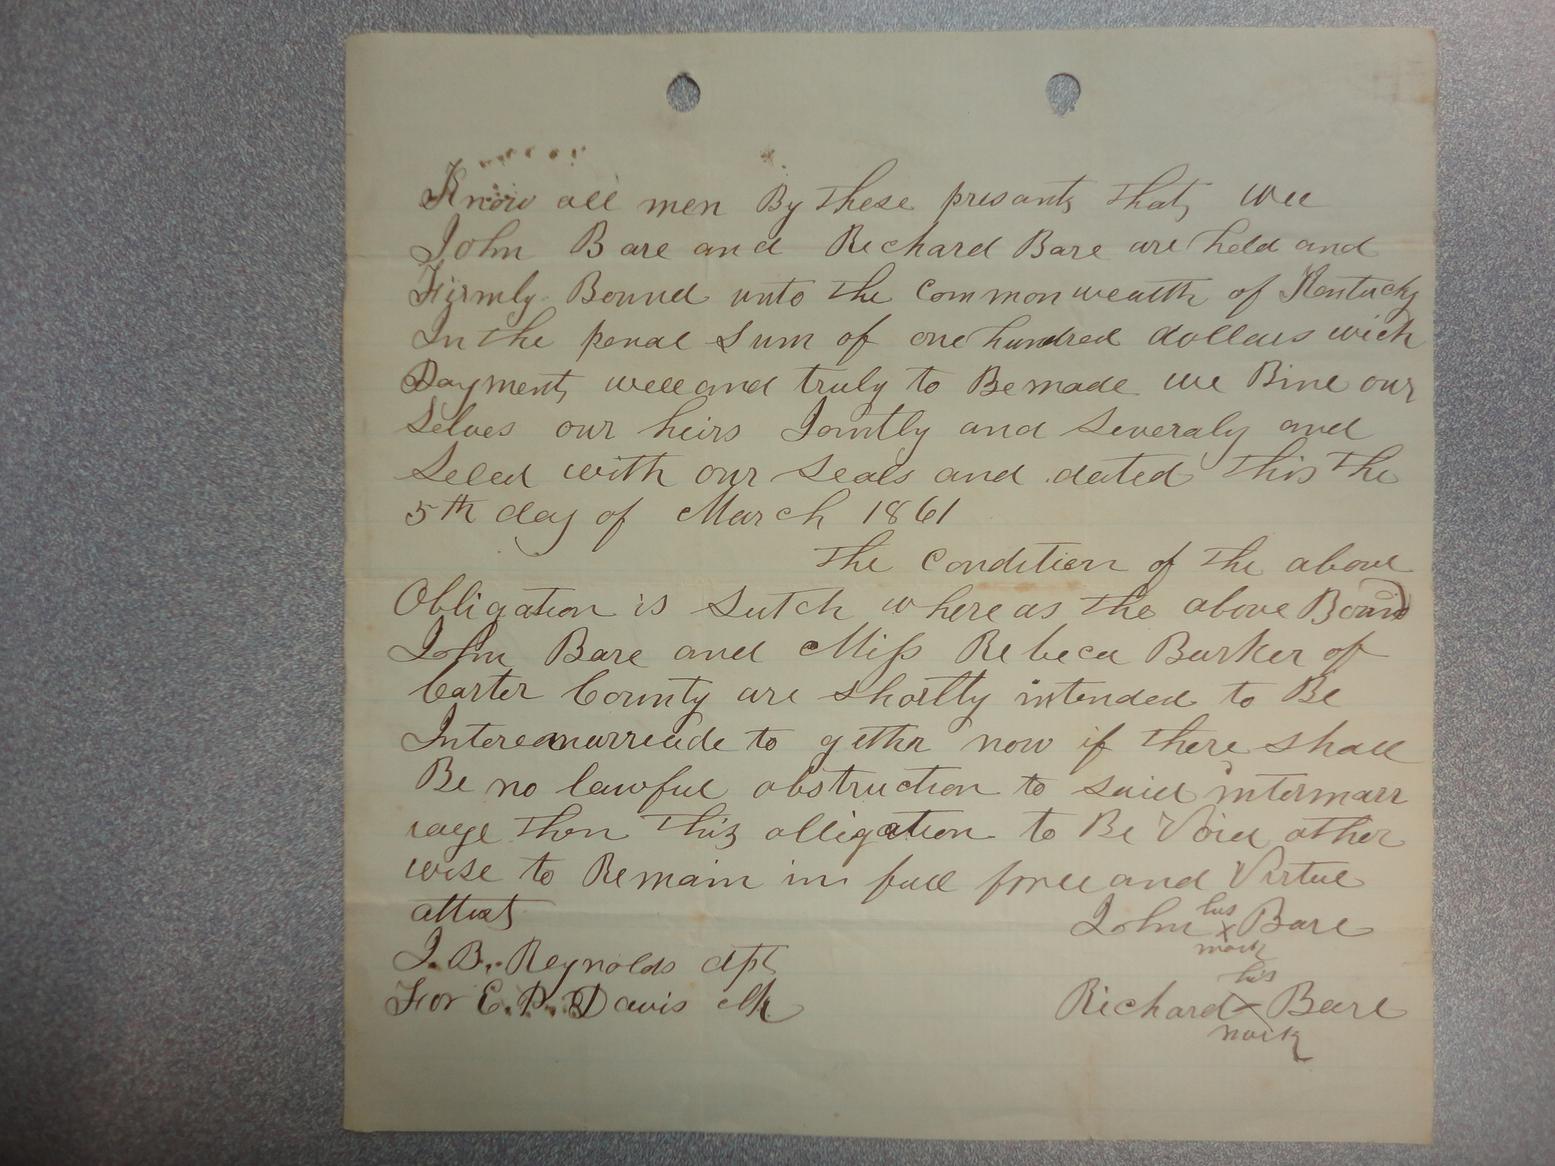 Know all men By these presants that wee
John Bare and Richard Bare are held and
Firmly Bound unto the common wealth of Kentucky
In the penal Sum of one hundred dollars wich
Payment well and truly to Be made we Bine our
Selves our heirs Jointly and Severaly and
Seled with our Seals and dated this the
5th day of March 1861
the condition of the above
Obligation is Sutch where as the above Bound
John Bare and Miss Rebeca Barker of
Carter County are shortly intended to Be
to gether now if there shall
Be no lawful obstruction to said intermarr
iage then this obligation to Be Void other
wise to Remain in full force and Virtue
attest
John his x mark Bare
J. B. Reynolds dpt
For E. P. Davis clk
Richard his x mark Bare